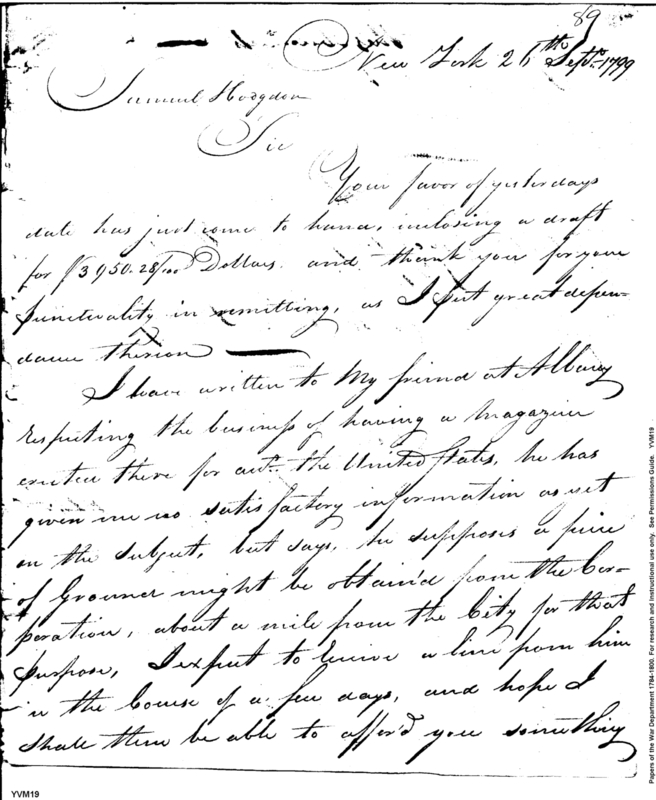 89
New York 26th Septr. 1799
Samuel Hodgdon
Sir
Your favor of yesterdays
date has just come to hand, inclosing a draft
for $3950.28/100 Dollars, and thank you for your
punctuality in remitting, as I put great depen-
dance thereon
I have written to my friend at Albany
respecting the business of having a Magazine
erected there for acct. the United States, he has
given me no satisfactory information as yet
on the subject, but says, he supposes a piece
of Ground might be obtain'd from the Cor-
poration, about a mile from the City for that
purpose, I expect to receive a line from him
in the Course of a few days, and hope I
shall then be able to afford you something
YVM19
Papers of the War Department 1784-1800. For research and instructional use only. See Permissions Guide. YVM19